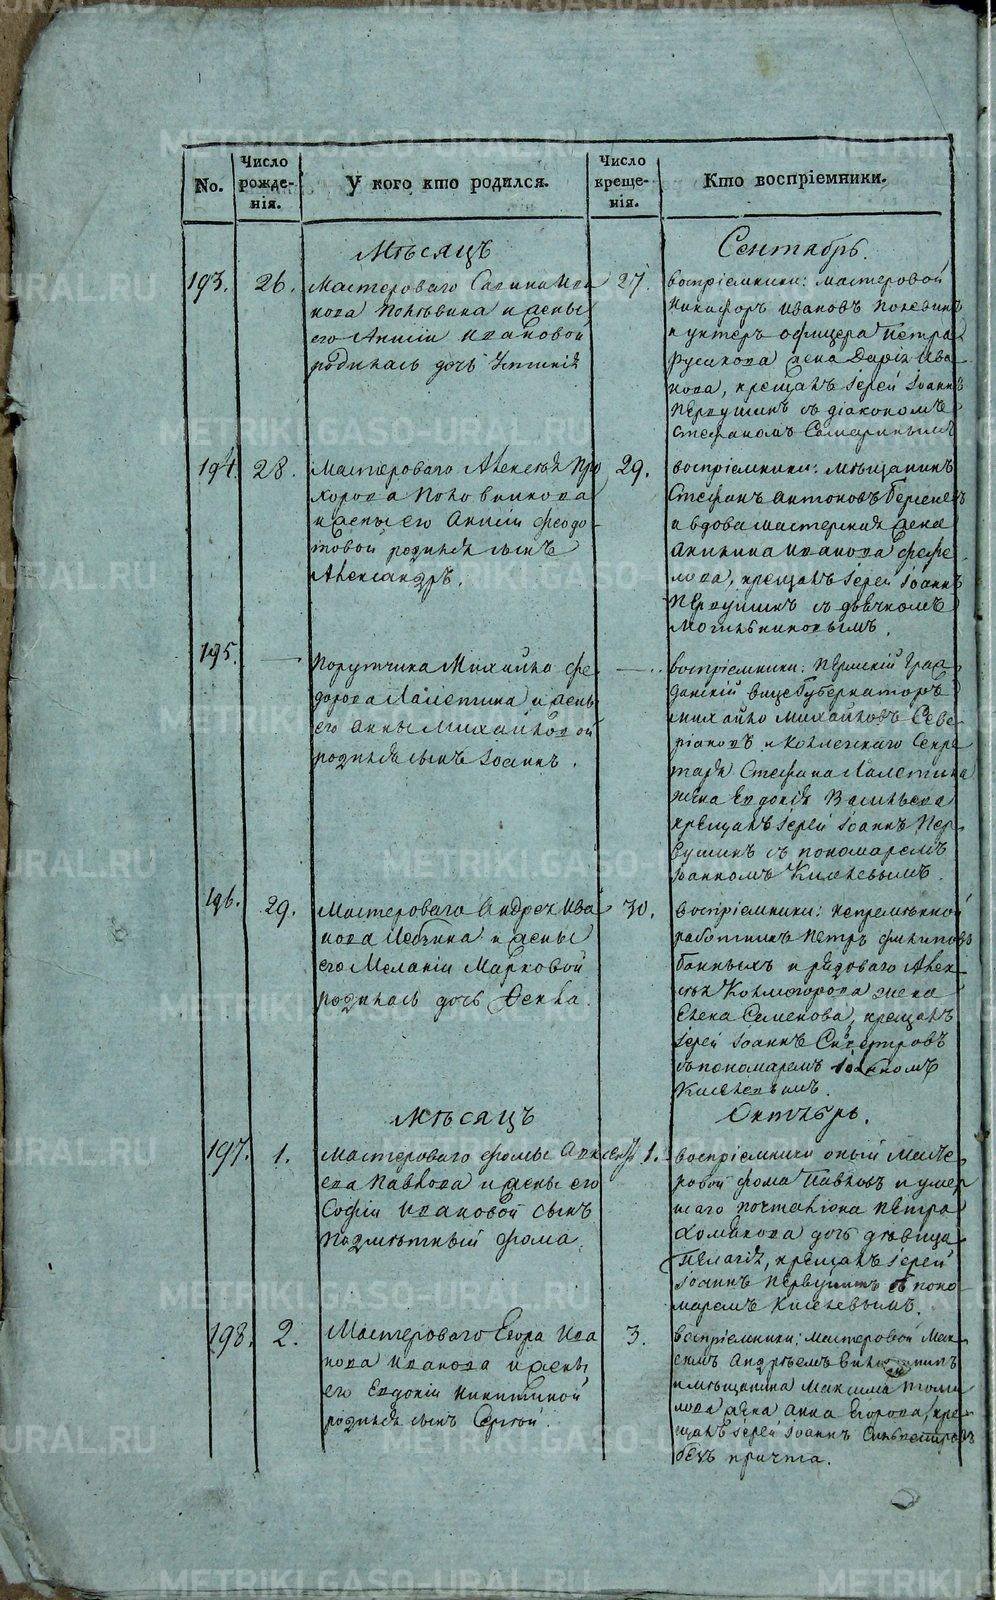 No.
Число рожде-нія.
У кого кто родился.
Число креще-нія.
Кто воспріемники.
Мѣсяцъ
Сентябрь.
193.
26.
Мастероваго Савина Ива
нова Полѣвина и жены
его Анисіи Ивановой
родилась дочь
27.
воспріемники: мастеровой
Никифоръ Ивановъ Полевинъ
и унтеръ офицера Петра
Русакова жена Дарія Ива
нова, крещалъ іерей Іоаннъ
Первушинъ съ діакономъ
Стефаномъ Самаринымъ
194.
28.
Мастероваго Алексѣя Про
хорова Половникова
и жены его Анисіи Феодо-
товой родился сынъ
Александръ.
29.
воспріемники: мѣщанинъ
Стефанъ Антоновъ
и вдова мастерская жена
Акилина Иванова Фефи
лова, крещалъ іерей Іоаннъ
Первушинъ съ дьячкомъ
Могильниковымъ.
195.
—
Порутчика Михайло Фе
дорова Налетина и жены
его Анны Михайловой
родился сынъ Іоаннъ.
—
воспріемники: Пермскій Граж
данскій вице Губернаторъ
михайло Михайловъ Севе
ріановъ и Коллегскаго Секре
таря Стефана Налетина
жена Евдокія Васильева
крещалъ іерей Іоаннъ Пер
вушинъ съ пономаремъ
Іоанномъ Киселевымъ.
196.
29.
Мастероваго Андрея Ива
нова и жены
его Меланіи Марковой
родилась дочь Фекла.
30.
воспріемники: непремѣнной
работникъ Петръ Филиповъ
Банныхъ и рядоваго Алек
сѣя Колмогорова жена
Елена Семенова, крещалъ
іерей Іоаннъ Сильвестровъ
съ пономаремъ Іоанномъ
Киселевымъ.
Мѣсяцъ
Октябрь.
197.
1.
Мастероваго Фомы Алексѣ
ева Павлова и жены его
Софіи Ивановой сынъ
подметный Фома.
1.
воспріемники оный Масте
ровой Фома Павловъ и умер
шаго почталіона Петра
Хомякова дочь дѣвица
Пелагія, крещалъ іерей
Іоаннъ Первушинъ съ поно
маремъ Киселевымъ.
198.
2.
Мастероваго Егора Ива
нова Иванова и жены
его Евдокіи Никитиной
родился сынъ Сергій.
3.
воспріемники: мастеровой Мак
симъ Андрѣевъ
и мѣщанина Максима Томи
лова жена Анна Егорова, кре
щалъ іерей Іоаннъ Сильвестровъ
безъ причта.
METRIKI.GASO-URAL.RU